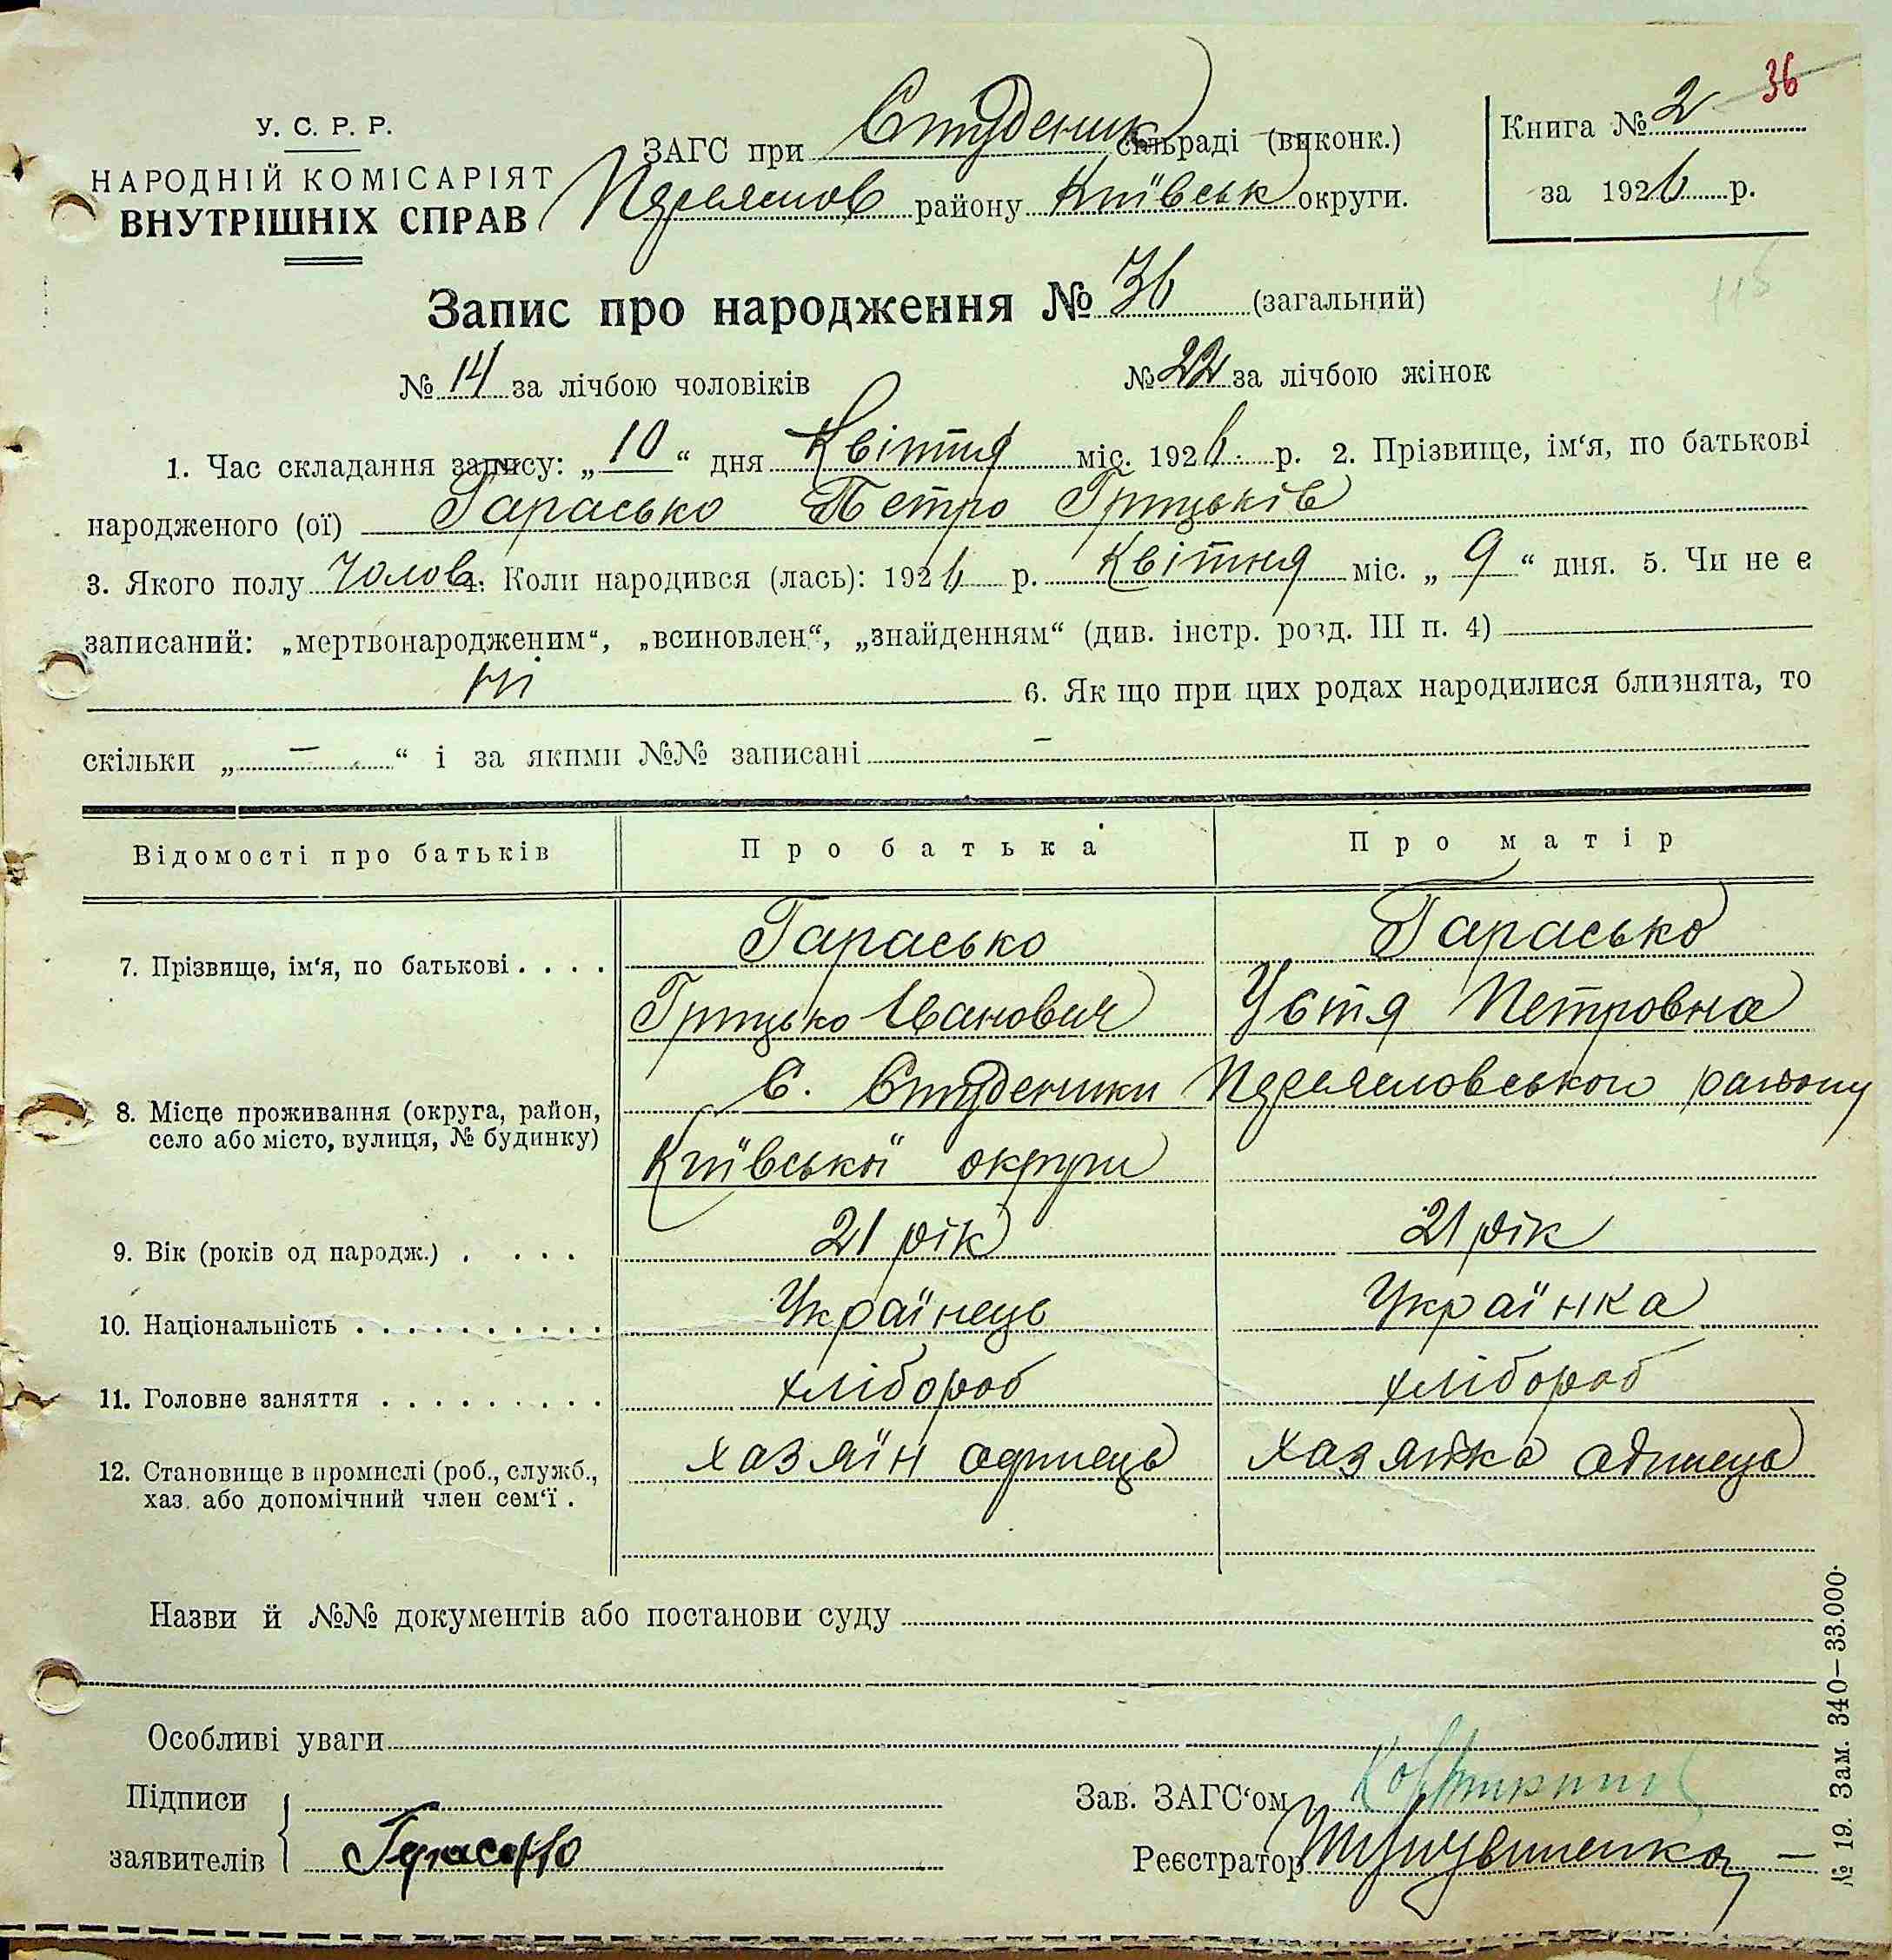 36
У. С. Р. Р.
НАРОДНІЙ КОМІСАРІЯТ
ВНУТРІШНІХ СПРАВ
ЗАГС при Студеник сільраді (виконк.)
Переяслов району Київськ округи.
Книга № 2
за 1926 р.
115
Запис про народження № 36 (загальний)
№ 14 за лічбою чоловіків № 22 за лічбою жінок
1. Час складання запису: „10“ дня Квітня міс. 1926 р. 2. Прізвище, ім‘я, по батькові
народженого (ої) Гарасько Петро Грицьків
3. Якого полу чолов. 4. Коли народився (лась): 1926 р. Квітня міс. „9“ дня. 5. Чи не є
записаний: „мертвонародженим“, „всиновлен“, „знайденням“ (див. інстр. розд. III п. 4)
ні 6. Як що при цих родах народилися близнята, то
скільки „ — “ і за якими №№ записані —
Відомості про батьків Про батька Про матір
7. Прізвище, ім‘я, по батькові . . . . Гарасько Гарасько
Грицько Іванович Устя Петровна
8. Місце проживання (округа, район, село або місто, вулиця, № будинку) С. Студеники Переясловського району
Київської округи
9. Вік (років од народж.) . . . . 21 рік 21 рік
10. Національність . . . . . . . . . . Українець Українка
11. Головне заняття . . . . . . . . . Хлібороб Хлібороб
12. Становище в промислі (роб., служб., хаз. або допомічний член сем‘ї . хазяїн одинець хазяйка одинець
Назви й №№ документів або постанови суду
Особливі уваги
Підписи
заявителів Гарасько
Зав. ЗАГС‘ом
Реєстратор
№ 19. Зам. 340—33.000.